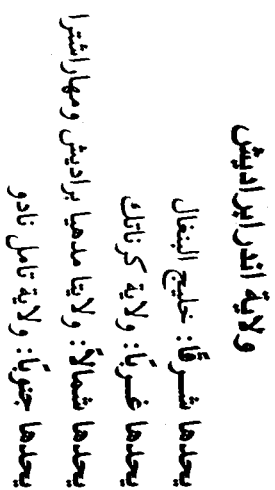 ولاية اندرابراديش
يحدها شرقًا: خليج البنغال
يحدها غربًا: ولاية كرناتك
يحدها شمالاً: ولايتا مدهيا براديش ومهاراشترا
يحدها جنوبًا: ولاية تامل نادو